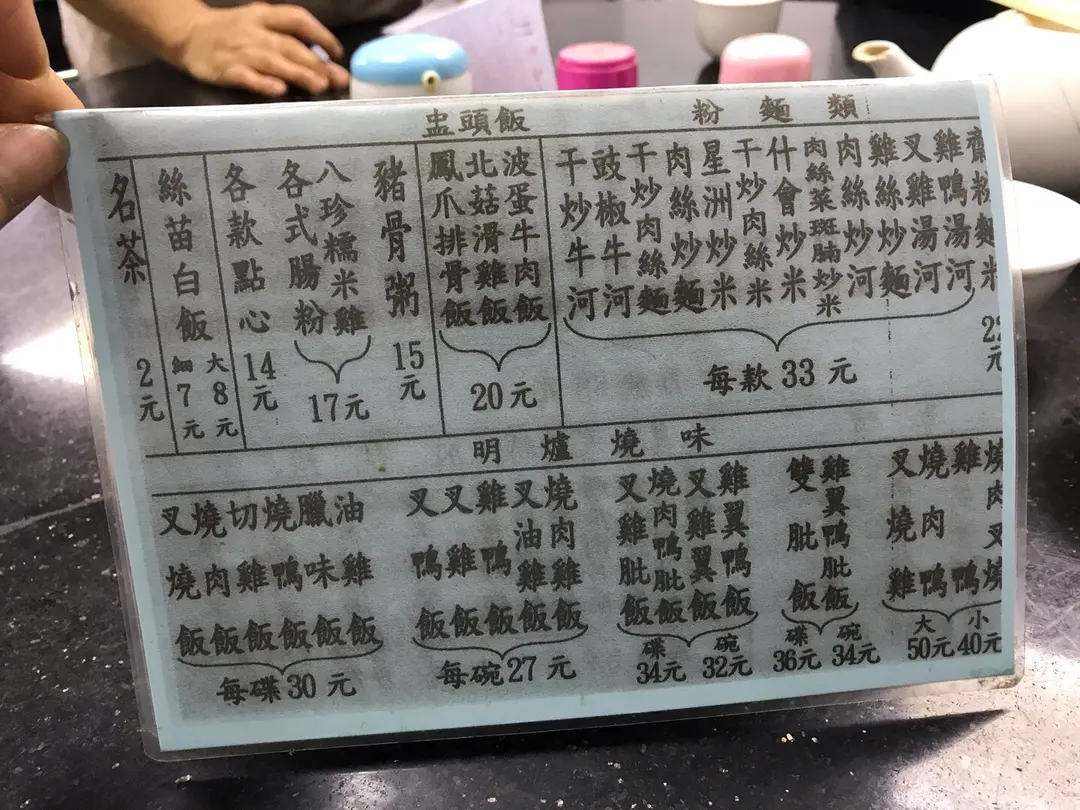 盅頭飯
粉麵類
名茶
2元
絲苗白飯
細7元
大8元
各款點心
14元
各式腸粉
八珍糯米雞
17元
豬骨粥
15元
鳳爪排骨飯
北菇滑雞飯
波蛋牛肉飯
20元
干炒牛河
豉椒牛河
干炒肉絲麵
肉絲炒麵
星洲炒米
干炒肉絲米
什會炒米
肉絲菜斑腩炒米
肉絲炒河
雞絲炒麵
叉雞湯河
雞鴨湯河
每款33元
齋粉麵米
22元
明爐燒味
叉燒飯
燒肉飯
切雞飯
燒鴨飯
臘味飯
油雞飯
每碟30元
叉鴨飯
叉雞飯
雞鴨飯
叉油雞飯
燒肉雞飯
每碗27元
叉雞肶飯
燒肉鴨肶飯
叉雞翼飯
雞翼鴨飯
碟34元
碗32元
雙肶飯
雞翼鴨肶飯
碟36元
碗34元
叉燒雞
燒肉鴨
雞鴨
燒肉叉燒
大50元
小40元